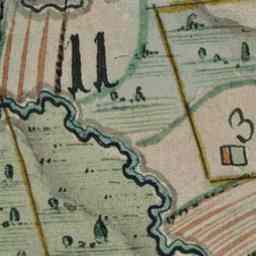 11
3